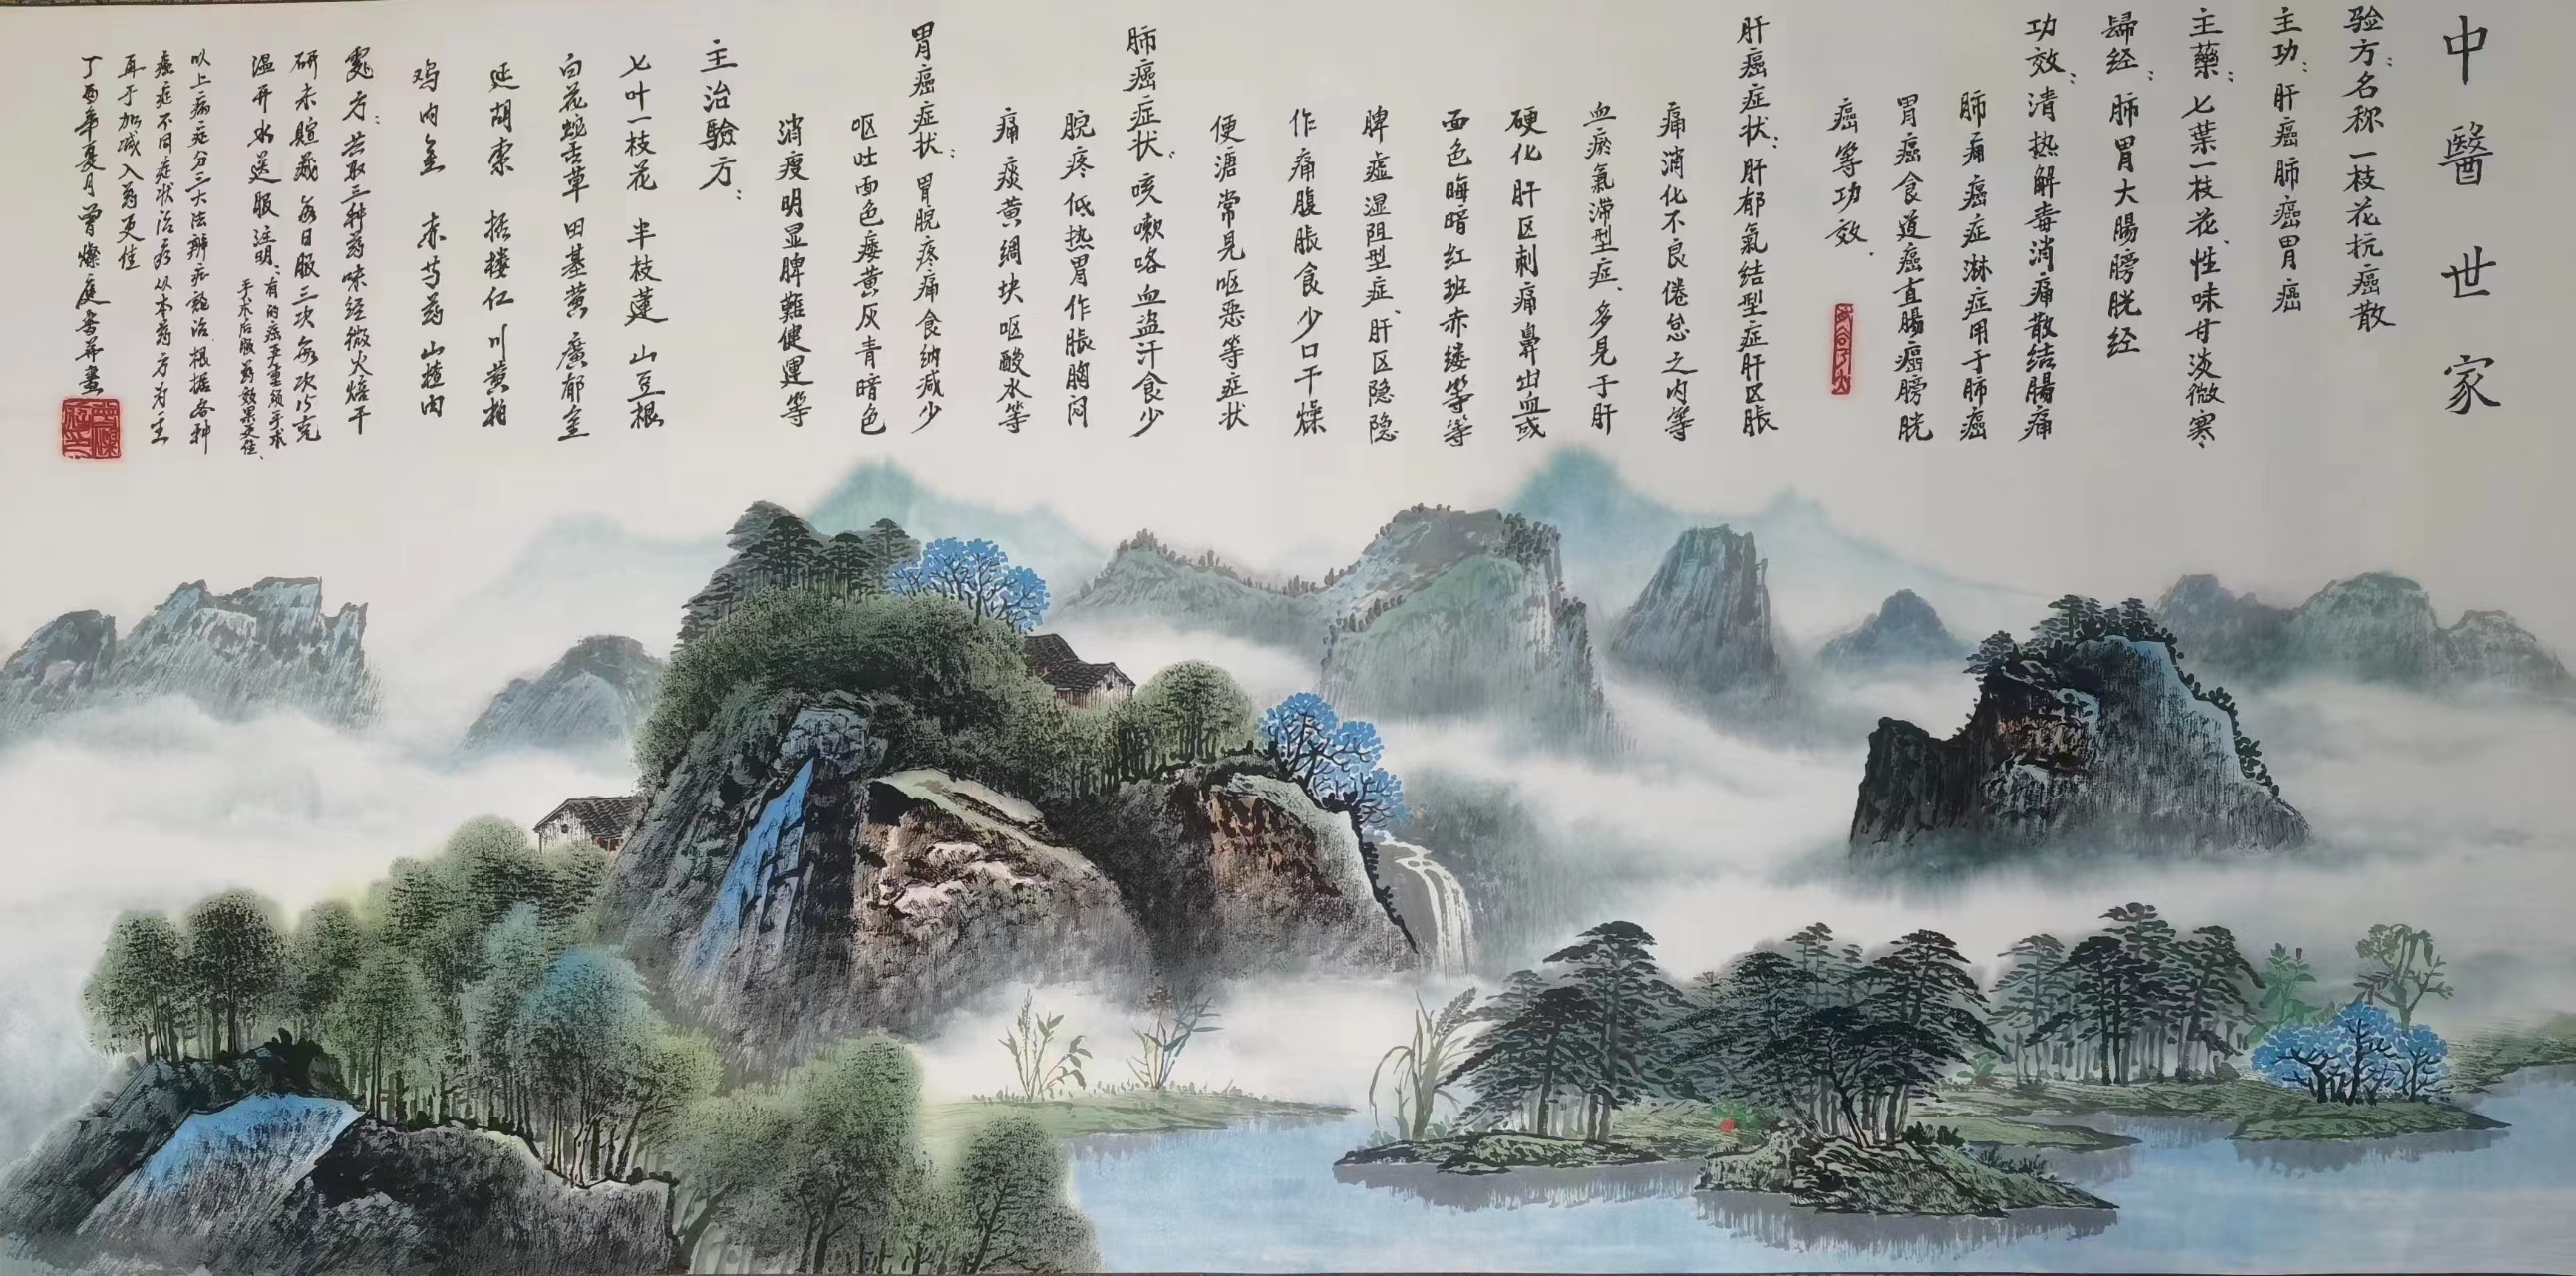 中醫世家
验方名称：一枝花抗癌散
主功：肝癌肺癌胃癌
主藥：七葉一枝花、性味甘淡微寒、
歸经：肺胃大腸膀胱经
功效：清热解毒消痛散结腸痛
肺痛癌症淋症用于肺癌
胃癌食道癌直腸癌膀胱
癌等功效.
肝癌症状：肝郁氣结型症肝区胀
痛消化不良倦怠之内等
血瘀氣滞型症、多見于肝
硬化肝区刺痛鼻出血或
面色晦暗红班赤缕等等
脾虚湿阻型症、肝区隐隐
作痛腹胀食少口干燥
便溏常見呕恶等症状
肺癌症状：咳嗽咯血盗汗食少
脘疼低热胃作胀胸闷
痛痰黄绸块呕酸水等
胃癌症状：胃脘疼痛食纳减少
呕吐面色痿黄灰青暗色
消瘦明显脾難健運等
主治驗方：
七叶一枝花 半枝蓮 山豆根
白花蛇舌草 田基黄 廣郁金
延胡索 括楼仁 川黄柏
鸡内金 赤芍药 山楂肉
處方：共取三种药味经微火焙干
研末貯藏每日服三次每次15克
温开水送服注明：有的癌严重须手术
手术后服药效果更佳、
以上病症分三大法辨症施治.根据各种
癌症不同症状治疗从本药方为主
再于加减入药更佳
丁酉年夏月曾燦庭書并畫